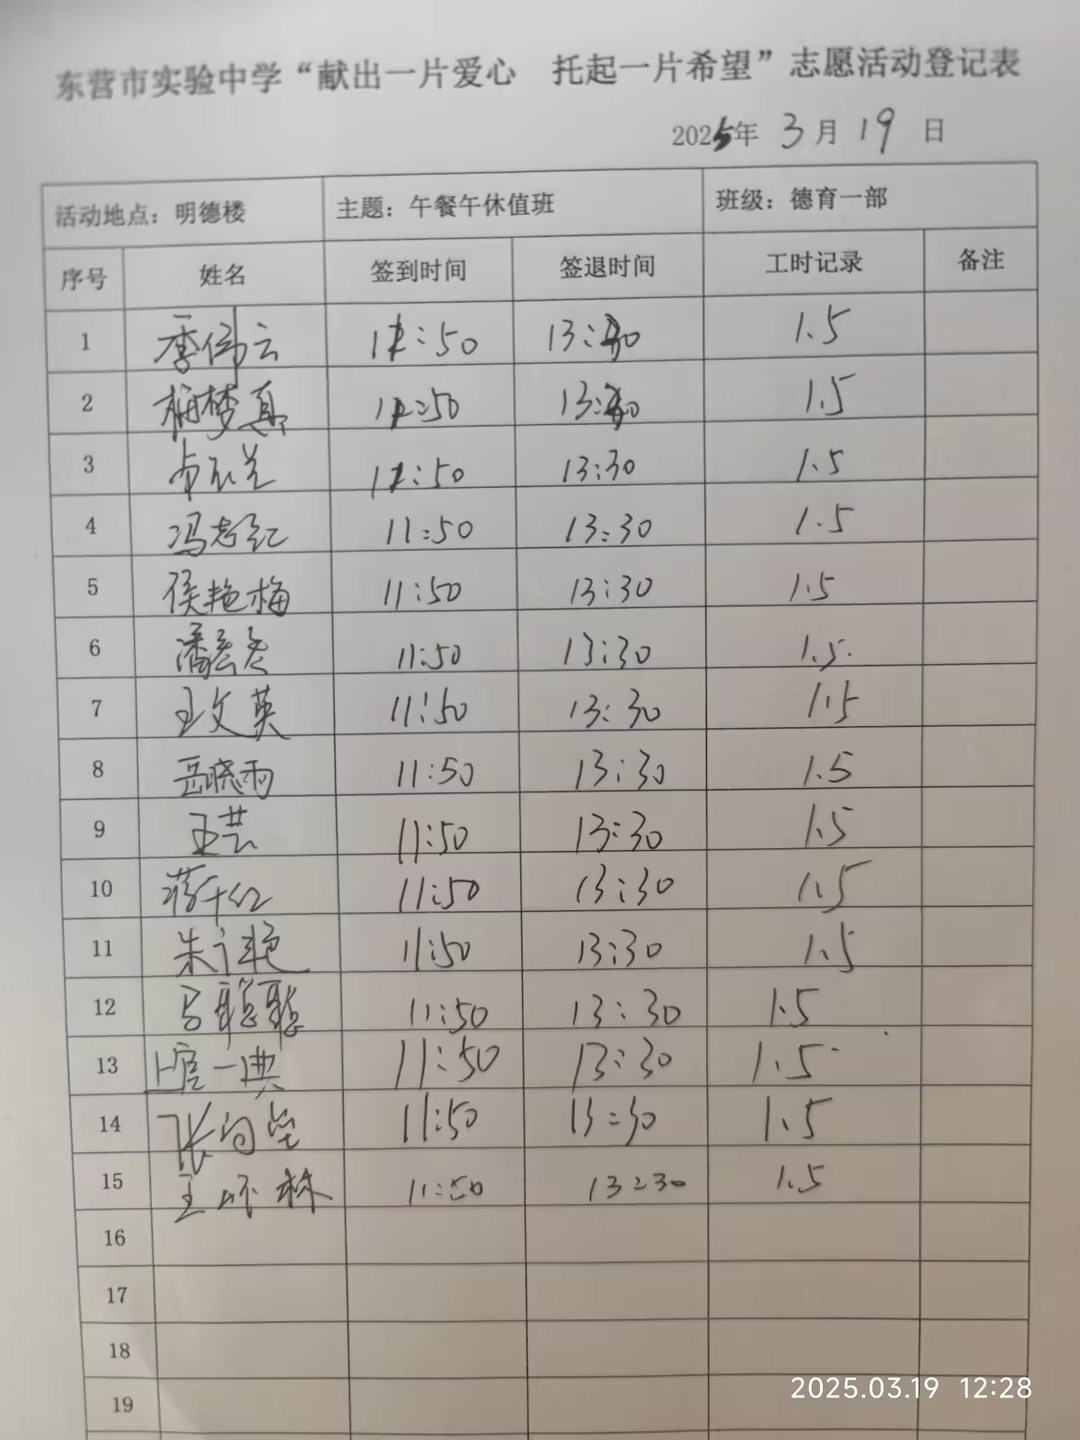 东营市实验中学“献出一片爱心 托起一片希望”志愿活动登记表
2025年 3月 19 日
活动地点：明德楼 主题：午餐午休值班 班级：德育一部
序号 姓名 签到时间 签退时间 工时记录 备注
1 季伟云 11:50 13:30 1.5
2 梦真 11:50 13:30 1.5
3 11:50 13:30 1.5
4 冯志红 11:50 13:30 1.5
5 侯艳梅 11:50 13:30 1.5
6 潘 11:50 13:30 1.5
7 王文英 11:50 13:30 1.5
8 岳晓雨 11:50 13:30 1.5
9 王芸 11:50 13:30 1.5
10 蒋千红 11:50 13:30 1.5
11 朱 艳 11:50 13:30 1.5
12 马聪聪 11:50 13:30 1.5
13 上官一典 11:50 13:30 1.5
14 张 11:50 13:30 1.5
15 王 林 11:50 13:30 1.5
16
17
18
19
2025.03.19 12:28